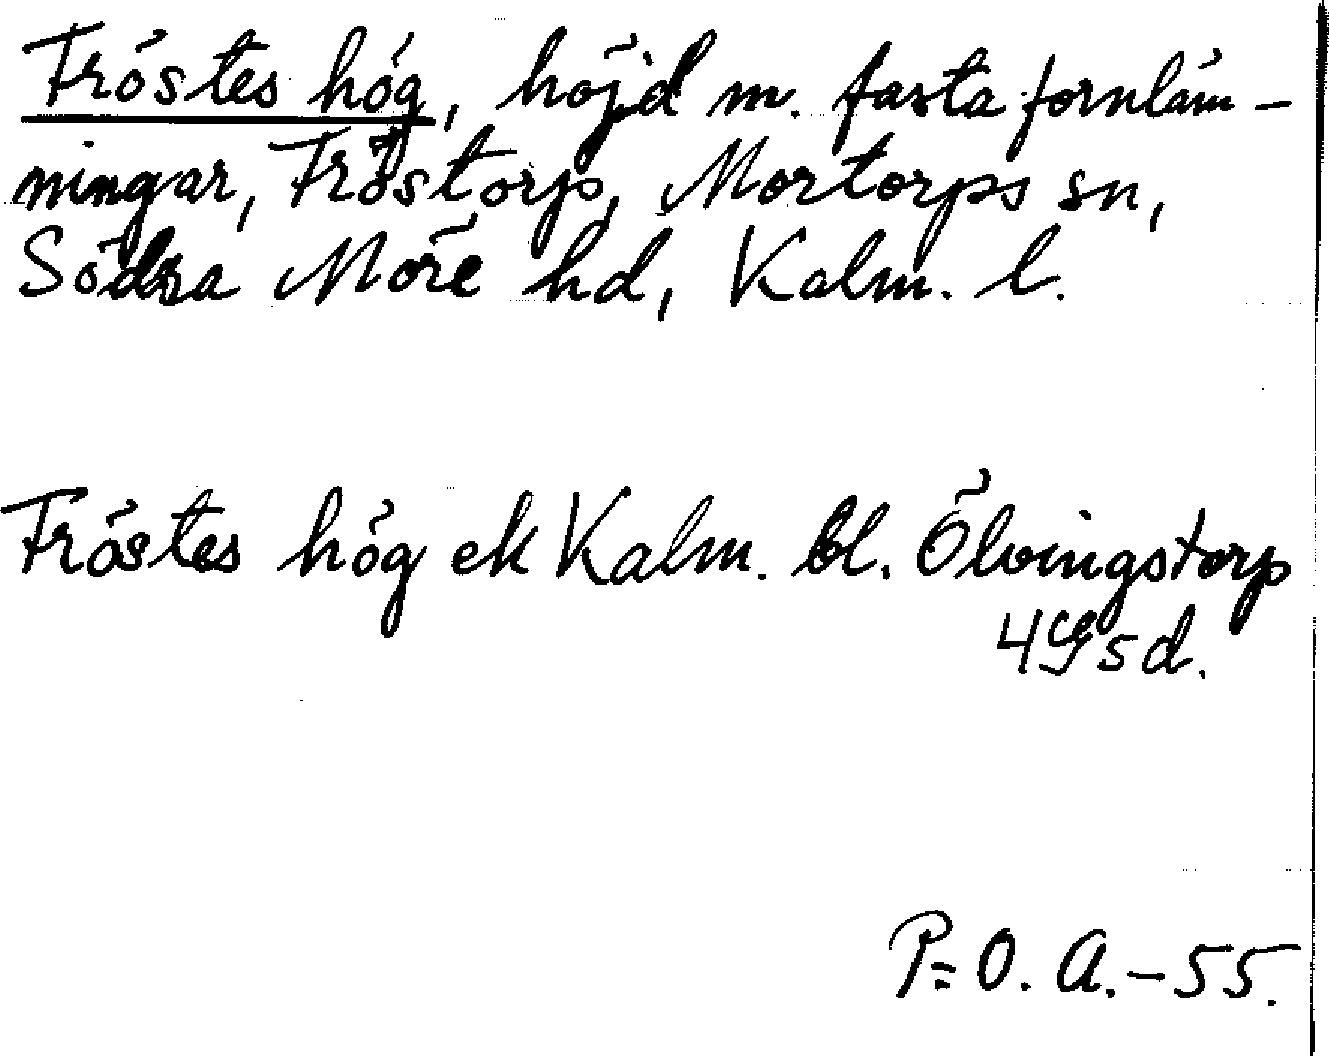 Tröstes hög, höjd m. fasta fornläm-
ningar, Tröstorp, Mortorps sn,
Södra Möre hd, Kalm. l.
Tröstes hög ek Kalm. bl. Ölvingstorp
4 G 5 d.
P=O. A.-55.